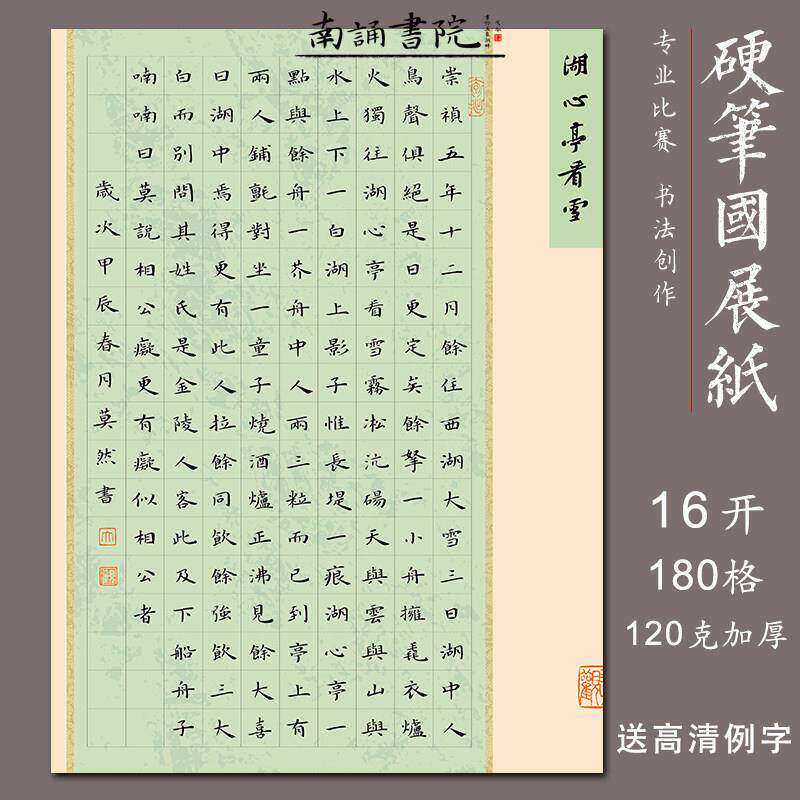 南誦書院
硬筆國展紙
专业比赛 书法创作
16开
180格
120克加厚
送高清例字
湖心亭看雪
崇禎五年十二月餘住西湖大雪三日湖中人
鳥聲俱絕是日更定矣餘拏一小舟擁毳衣爐
火獨往湖心亭看雪霧凇沆碭天與雲與山與
水上下一白湖上影子惟長堤一痕湖心亭一
點與餘舟一芥舟中人兩三粒而已到亭上有
兩人鋪氈對坐一童子燒酒爐正沸見餘大喜
曰湖中焉得更有此人拉餘同飲餘強飲三大
白而別問其姓氏是金陵人客此及下船舟子
喃喃曰莫說相公癡更有癡似相公者
歲次甲辰春月莫然書